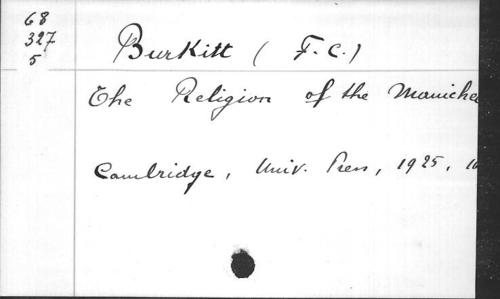 68
327
5
Burkitt ( F. C. )
The Religion of the Manichee
Cambridge, Univ. Press, 1925, 16